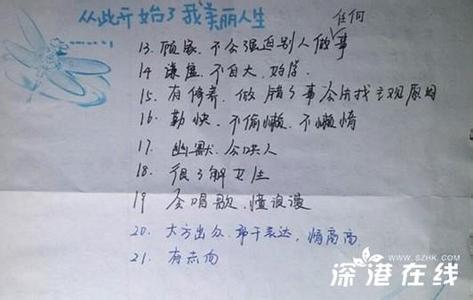 从此开始了我美丽人生
任何
13. 顾家、不会强迫别人做事
14 谦虚、不自大、好学
15. 有修养、做错了事会先找主观原因
16. 勤快、不偷懒、不懒惰
17. 幽默、会哄人
18. 很了解女生
19 会唱歌、懂浪漫
20. 大方出众、善于表达，情商高
21. 有志向
深港在线
WWW.SZHK.COM